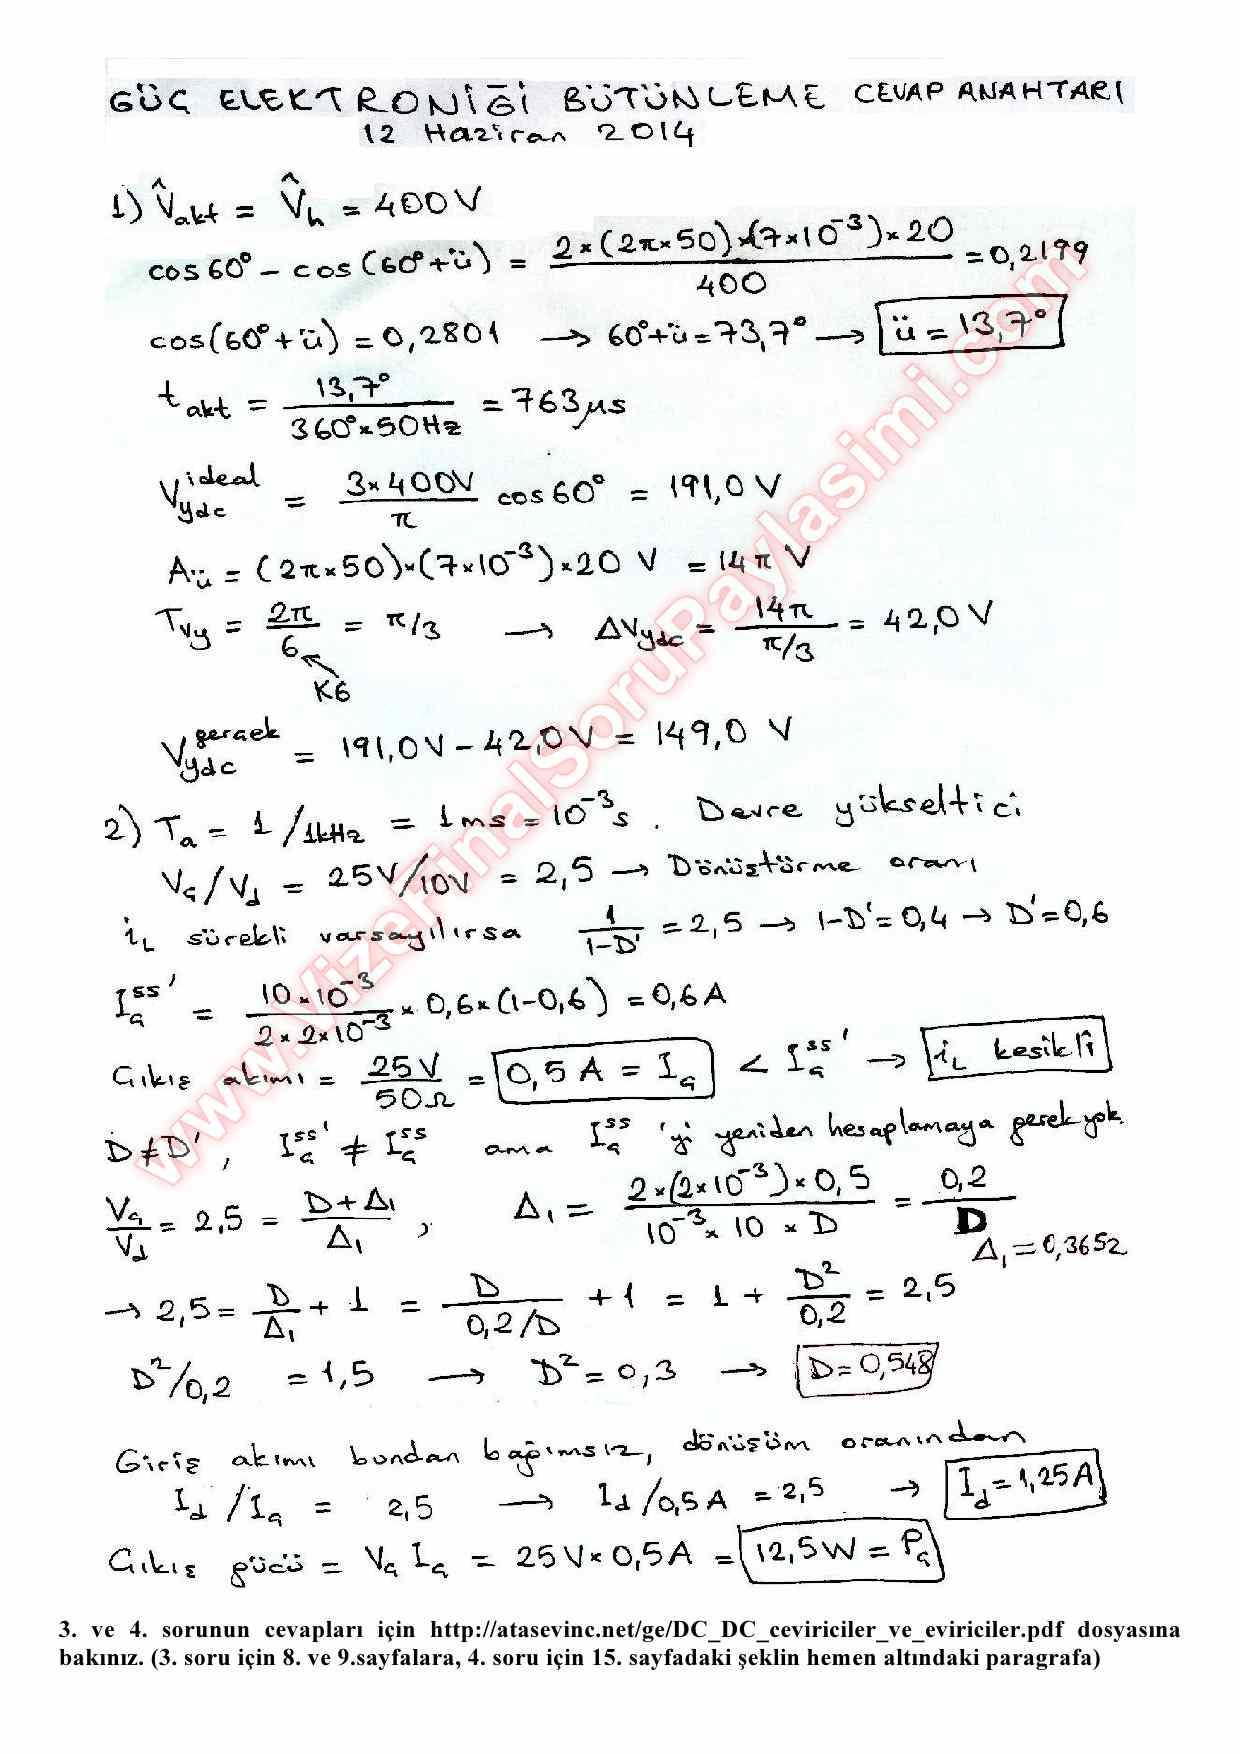 GÜÇ ELEKTRONİĞİ BÜTÜNLEME CEVAP ANAHTARI
12 Haziran 2014
1) V̂akt = V̂h = 400V
cos60° - cos(60°+ü) = 2×(2π×50)×(7×10⁻³)×20 / 400 = 0,2199
cos(60°+ü) = 0,2801 → 60°+ü = 73,7° → ü = 13,7°
takt = 13,7° / 360°×50Hz = 763µs
Vydc^ideal = 3×400V / π cos60° = 191,0 V
Aü = (2π×50)×(7×10⁻³)×20 V = 14π V
Tvy = 2π / 6 = π/3 → ΔVydc = 14π / π/3 = 42,0 V
K6
Vydc^gerçek = 191,0V - 42,0V = 149,0 V
2) Ta = 1/1kHz = 1ms = 10⁻³s. Devre yükseltici
Vç/Vd = 25V/10V = 2,5 → Dönüştürme oranı
iL sürekli varsayılırsa 1 / 1-D' = 2,5 → 1-D' = 0,4 → D' = 0,6
Iç^ss' = 10×10⁻³ / 2×2×10⁻³ × 0,6×(1-0,6) = 0,6A
Çıkış akımı = 25V / 50Ω = 0,5A = Iç < Iç^ss' → iL kesikli
D≠D', Iç^ss' ≠ Iç^ss ama Iç^ss 'yi yeniden hesaplamaya gerek yok
Vç / Vd = 2,5 = D+Δ₁ / Δ₁ , Δ₁ = 2×(2×10⁻³)×0,5 / 10⁻³×10×D = 0,2 / D
Δ₁ = 0,3652
→ 2,5 = D / Δ₁ + 1 = D / 0,2/D + 1 = 1 + D² / 0,2 = 2,5
D²/0,2 = 1,5 → D² = 0,3 → D = 0,548
Giriş akımı bundan bağımsız, dönüşüm oranından
Id / Iç = 2,5 → Id/0,5A = 2,5 → Id = 1,25A
Çıkış gücü = Vç Iç = 25V×0,5A = 12,5W = Pç
3. ve 4. sorunun cevapları için http://atasevinc.net/ge/DC_DC_ceviriciler_ve_eviriciler.pdf dosyasına
bakınız. (3. soru için 8. ve 9.sayfalara, 4. soru için 15. sayfadaki şeklin hemen altındaki paragrafa)
www.VizeFinalSoruPaylasimi.com